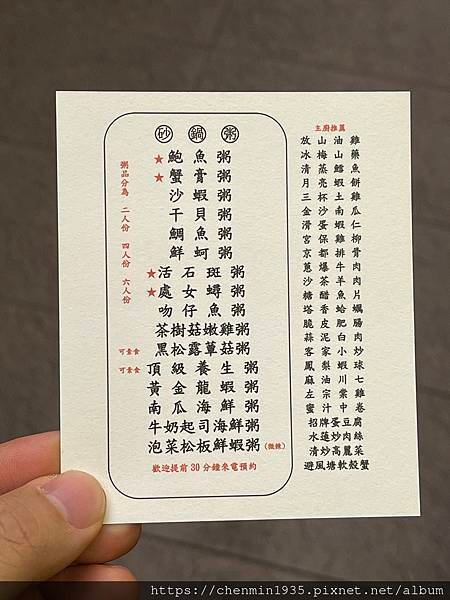 砂鍋粥
★鮑魚粥
★蟹膏粥
沙蝦粥
干貝粥
鯛魚粥
鮮蚵粥
★活石斑粥
★處女蟳粥
吻仔魚粥
茶樹菇嫩雞粥
可素食 黑松露蕈菇粥
可素食 頂級養生粥
黃金龍蝦粥
南瓜海鮮粥
牛奶起司海鮮粥
泡菜松板鮮蝦粥(微辣)
歡迎提前30分鐘來電預約
粥品分為 二人份 四人份 六人份
主廚推薦
放山油雞
冰梅山藥
清蒸鱈魚
月亮蝦餅
三杯土雞
金沙南瓜
滑蛋蝦仁
宮保雞柳
京都排骨
蔥爆牛肉
沙茶羊肉
糖醋魚片
塔香蛤蠣
脆皮肥腸
蒜泥白肉
客家小炒
鳳梨蝦球
麻油川七
左宗棠雞
蜜汁中卷
招牌蛋豆腐
水蓮炒肉絲
清炒高麗菜
避風塘軟殼蟹
https://chenmin1935.pixnet.net/album